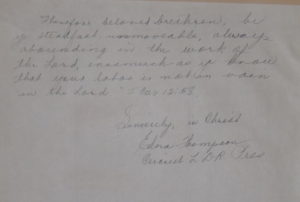 Therefore beloved brethren, be
ye steadfast, unmoveable, always
abounding in the work of
the Lord, inasmuch as ye know
that your labor is not in vain
in the Lord" I Cor 15:58
Sincerely, in Christ
Edna Thompson
L. D. R. Pres